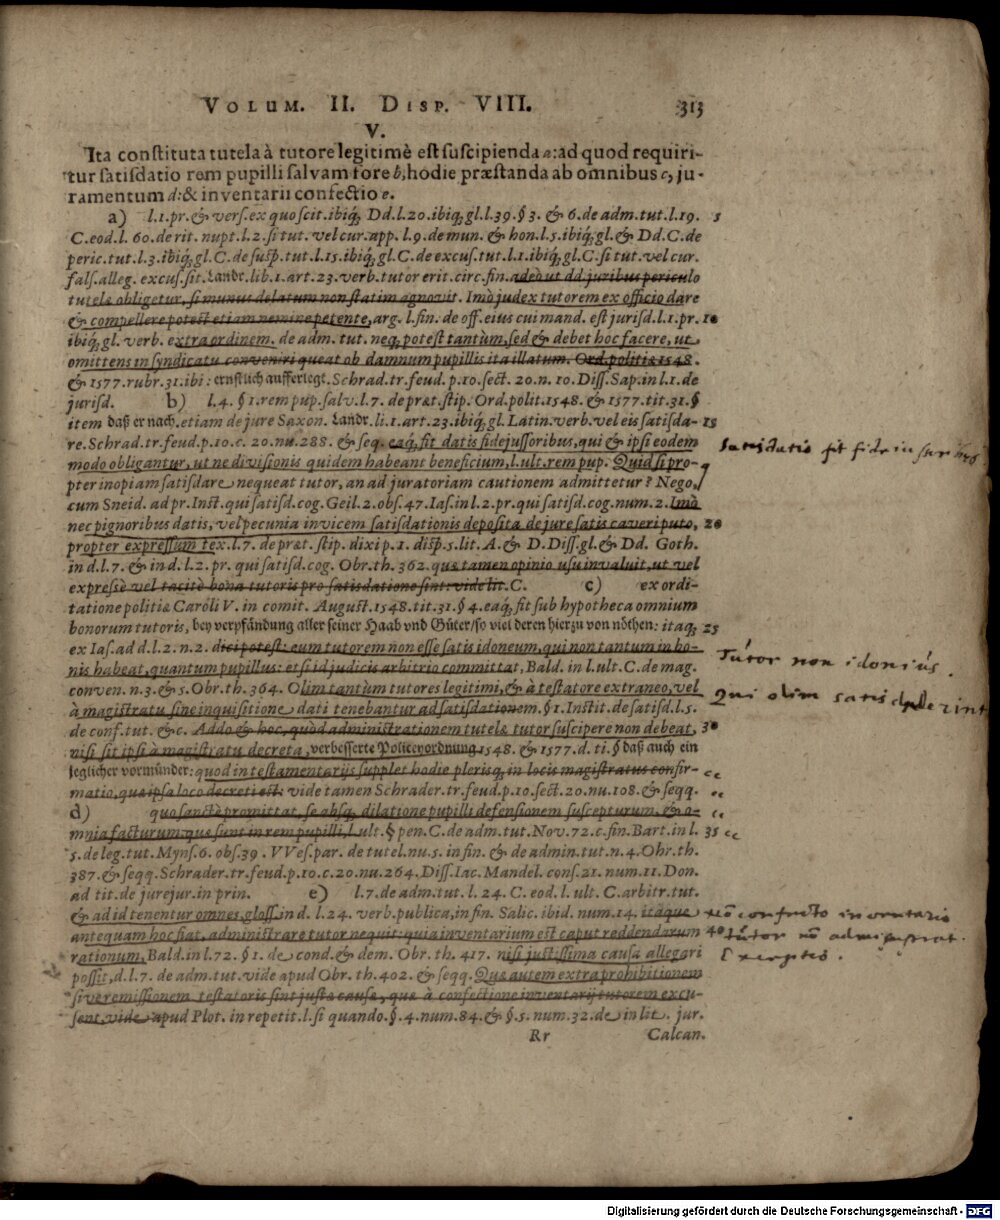 VOLUM. II. DISP. VIII. 313
V.
Ita constituta tutela à tutore legitimè est suscipienda a: ad quod requiri-
tur satisdatio rem pupilli salvam fore b, hodie præstanda ab omnibus c, ju-
ramentum d: & inventarii confectio e.
a) l.1.pr. & vers. ex quo scit. ibiq́; Dd. l.20. ibiq́; gl. l.39. § 3. & 6. de adm. tut. l.19. 5
C. eod. l. 60. de rit. nupt. l.2. si tut. vel cur. app. l.9. de mun. & hon. l.5. ibiq́; gl. & Dd. C. de
peric. tut. l.3. ibiq́; gl. C. de susp. tut. l.15. ibiq́; gl. C. de excus. tut. l.1. ibiq́; gl. C. si tut. vel cur.
fals. alleg. excus. sit. Landr. lib.1. art.23. verb. tutor erit. circ. fin. adeò ut dd. juribus periculo
tutelæ obligetur, si munus delatum non statim agnovit. Imò judex tutorem ex officio dare
& compellere potest etiam nemine petente, arg. l. fin. de off. eius cui mand. est jurisd. l.1. pr. 10
ibiq́; gl. verb. extra ordinem. de adm. tut. neq; potest tantùm, sed & debet hoc facere, ut
omittens in syndicatu conveniri queat ob damnum pupillis ita illatum. Ord. politiæ 1548.
& 1577. rubr. 31. ibi: ernstlich aufferlegt. Schrad. tr. feud. p.10. sect. 20. n. 10. Diss. Sap. in l.1. de
jurisd. b) l.4. § 1. rem pup. salv. l.7. de præt. stip. Ord. polit. 1548. & 1577. tit. 31. §
item daß er nach. etiam de jure Saxon. Landr. li.1. art.23. ibiq́; gl. Latin. verb. vel eis satisda- 15
re. Schrad. tr. feud. p.10. c. 20. nu. 288. & seq. eaq́; fit datis fidejussoribus, qui & ipsi eodem
modo obligantur, ut ne divisionis quidem habeant beneficium, l. ult. rem pup. Quid si pro-
pter inopiam satisdare nequeat tutor, an ad juratoriam cautionem admittetur? Nego,
cum Sneid. ad pr. Inst. qui satisd. cog. Geil. 2. obs. 47. Ias. in l.2. pr. qui satisd. cog. num. 2. Imò
nec pignoribus datis, vel pecunia invicem satisdationis deposita de jure satis caveri puto, 20
propter expressum tex. l.7. de præt. stip. dixi p.1. disp. 5. lit. A. & D. Diss. gl. & Dd. Goth.
in d. l.7. & in d. l.2. pr. qui satisd. cog. Obr. th. 362. quæ tamen opinio usu invaluit, ut vel
expressè vel tacitè bona tutoris pro satisdatione sint. vide lit. C. c) ex ordi-
tatione politiæ Caroli V. in comit. August. 1548. tit. 31. § 4. eaq́; fit sub hypotheca omnium
bonorum tutoris, bey verpfändung aller seiner Haab vnd Güter/so viel deren hierzu von nöthen: itaq; 25
ex Ias. ad d. l.2. n. 2. dici potest: eum tutorem non esse satis idoneum, qui non tantum in bo-
nis habeat, quantum pupillus: etsi id judicis arbitrio committat, Bald. in l. ult. C. de mag.
conven. n.3. & 5. Obr. th. 364. Olim tantùm tutores legitimi, & à testatore extraneo, vel
à magistratu sine inquisitione dati tenebantur ad satisdationem. § 1. Instit. de satisd. l.5.
de conf. tut. & c. Addo & hoc, quòd administrationem tutelæ tutor suscipere non debeat, 30
nisi sit ipsi à magistratu decreta, verbesserte Policeyordnung 1548. & 1577. d. ti. § daß auch ein
jeglicher vormünder: quod in testamentarijs supplet hodie plerisq; in locis magistratus confir-
matio, quæ ipsa loco decreti est. vide tamen Schrader. tr. feud. p.10. sect. 20. nu. 108. & seqq.
d) quo sanctè promittat, se absq; dilatione pupilli defensionem suscepturum, & o-
mnia facturum quæ sunt in rem pupilli, l. ult. § pen. C. de adm. tut. Nov. 72. c. fin. Bart. in l. 35
5. de leg. tut. Myns. 6. obs. 39. VVes. par. de tutel. nu. 5. in fin. & de admin. tut. n. 4. Obr. th.
387. & seqq. Schrader. tr. feud. p.10. c. 20. nu. 264. Diss. Iac. Mandel. cons. 21. num. 11. Don.
ad tit. de jurejur. in prin. e) l.7. de adm. tut. l. 24. C. eod. l. ult. C. arbitr. tut.
& ad id tenentur omnes, gloss. in d. l. 24. verb. publica, in fin. Salic. ibid. num. 14. itaque
antequam hoc fiat, administrare tutor nequit: quia inventarium est caput reddendarum 40
rationum, Bald. in l. 72. § 1. de cond. & dem. Obr. th. 417. nisi justissima causa allegari
possit, d. l. 7. de adm. tut. vide apud Obr. th. 402. & seqq. Quæ autem extra prohibitionem
sive remissionem testatoris sint justæ causæ, quæ à confectione inventarij tutorem excu-
sent, vide apud Plot. in repetit. l. si quando. §. 4. num. 84. & §. 5. num. 32. de in lit. jur.
Rr Calcan.
Satisdatio fit fideiussoribus
Tutor non idoneus.
Qui olim satisdederint
non confecto inventario
tutor nō administrat.
Exceptio.
Digitalisierung gefördert durch die Deutsche Forschungsgemeinschaft - DFG